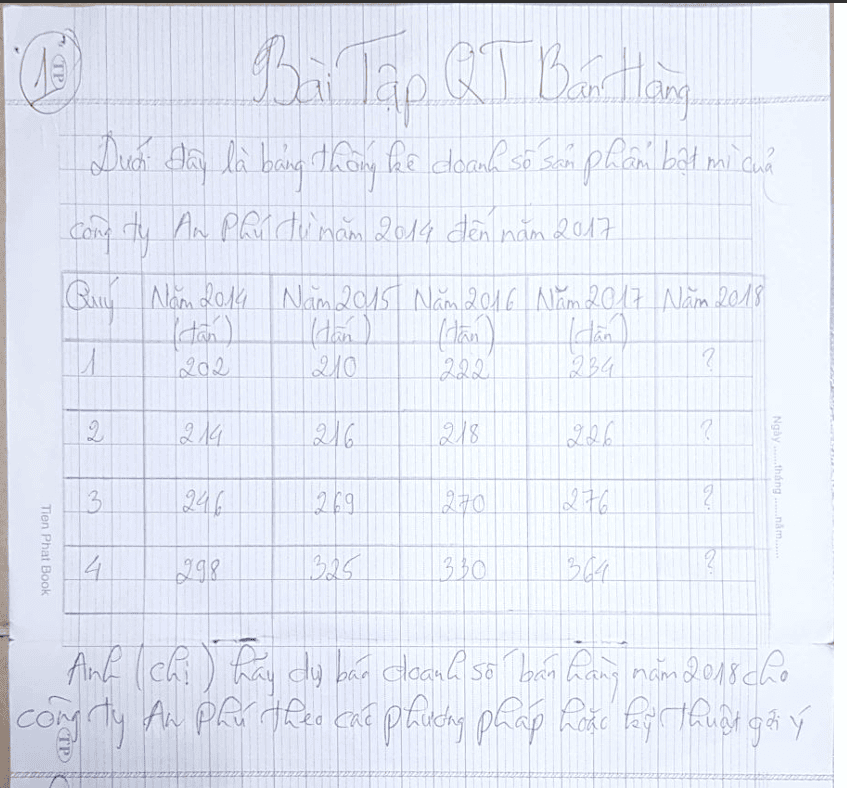 1
TP
Bài Tập QT Bán Hàng
Dưới đây là bảng thống kê doanh số sản phẩm bột mì của
công ty An Phú từ năm 2014 đến năm 2017
Quý Năm 2014 (tấn) Năm 2015 (tấn) Năm 2016 (tấn) Năm 2017 (tấn) Năm 2018
1 202 210 222 234 ?
2 214 216 218 226 ?
3 246 269 270 276 ?
4 298 325 330 364 ?
Ngày ......tháng ......năm......
Tien Phat Book
Anh (chị) hãy dự báo doanh số bán hàng năm 2018 cho
công ty An Phú theo các phương pháp hoặc kỹ thuật gợi ý
TP